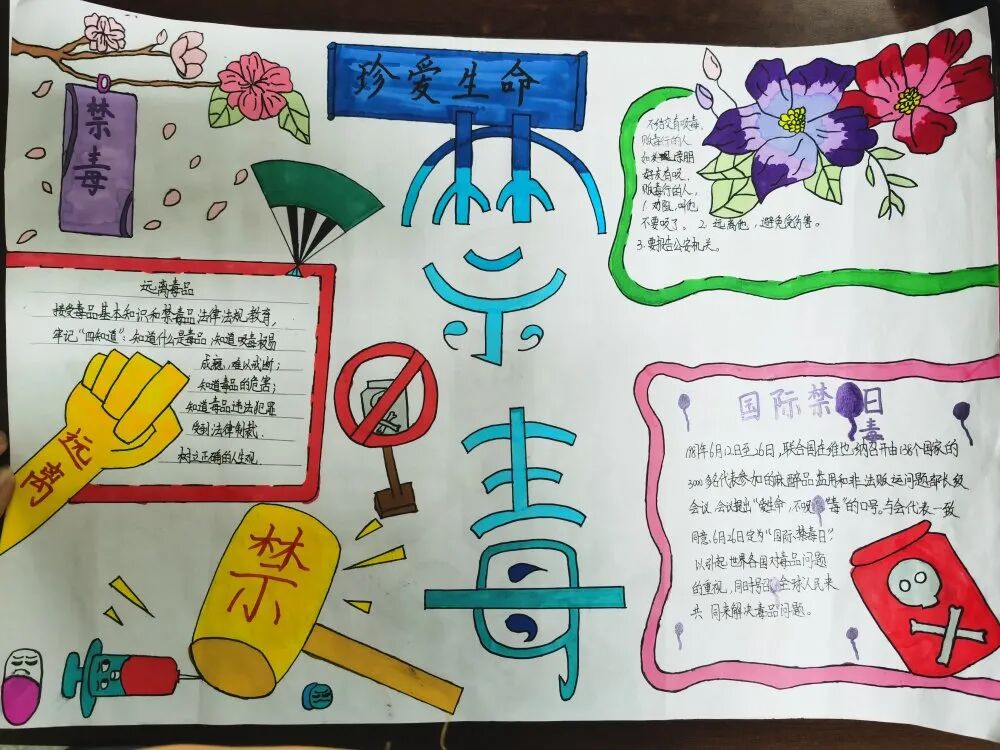 珍爱生命
禁毒
禁毒
远离毒品
接受毒品基本知识和禁毒品法律法规教育,
牢记“四知道”:知道什么是毒品,知道吸毒易
成瘾,难以戒断;
知道毒品的危害;
知道毒品违法犯罪
受到法律制裁.
树立正确的人生观.
远离
禁
不结交有吸毒、
贩毒行的人
如果 亲朋
好友有吸、
贩毒行的人,
1. 劝 叫他
不要吸了。 2. 远离他,避免受伤害。
3.要报告公安机关。
国际禁毒日
1987年6月12日至26日,联合国在维也纳召开由138个国家的
3000多名代表参加的麻醉品滥用和非法贩运问题部长级
会议.会议提出“爱生命,不吸毒”的口号。与会代表一致
同意6月26日定为“国际禁毒日”
以引起世界各国对毒品问题
的重视,同时号召全球人民来
共 同来解决毒品问题。